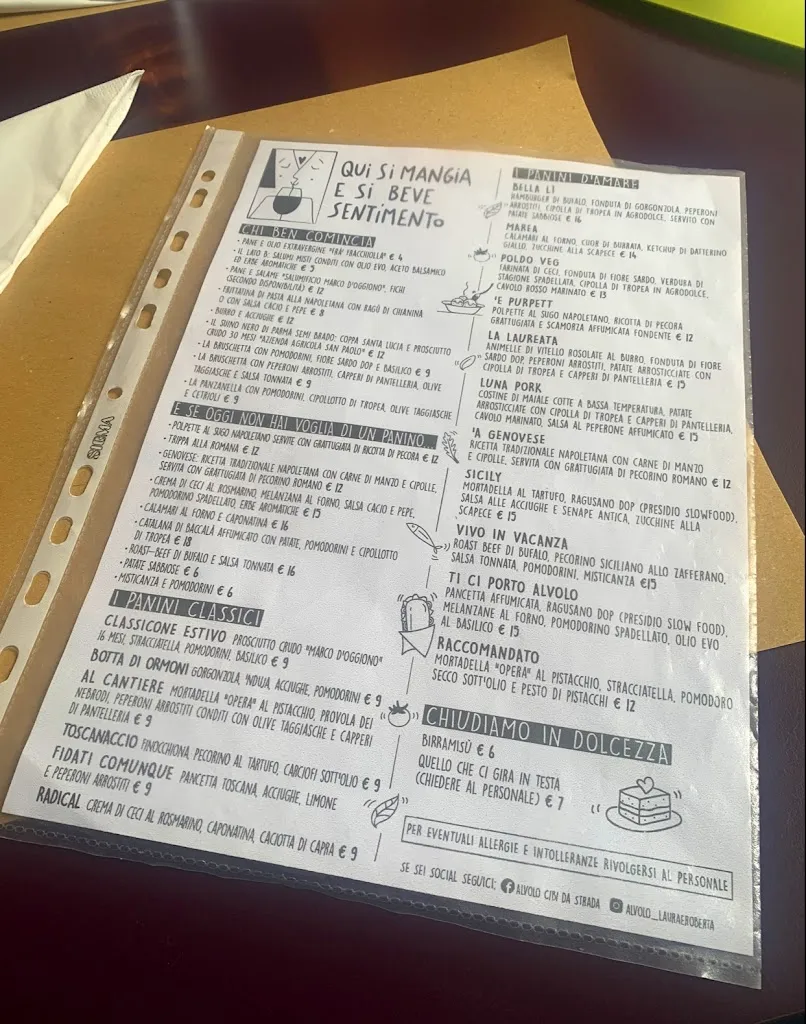 QUI SI MANGIA
E SI BEVE
SENTIMENTO
CHI BEN COMINCIA
• PANE E OLIO EXTRAVERGINE "FRA' FRACCHIOLLA" € 4
• IL LATO B: SALUMI MISTI CONDITI CON OLIO EVO, ACETO BALSAMICO
ED ERBE AROMATICHE € 5
• PANE E SALAME "SALUMIFICIO MARCO D'OGGIONO", FICHI
(SECONDO DISPONIBILITÀ) € 12
• FRITTATINA DI PASTA ALLA NAPOLETANA CON RAGÙ DI CHIANINA
O CON SALSA CACIO E PEPE € 8
• BURRO E ACCIUGHE € 12
• IL SUINO NERO DI PARMA SEMI BRADO: COPPA SANTA LUCIA E PROSCIUTTO
CRUDO 30 MESI "AZIENDA AGRICOLA SAN PAOLO" € 12
• LA BRUSCHETTA CON POMODORINI, FIORE SARDO DOP E BASILICO € 9
• LA BRUSCHETTA CON PEPERONI ARROSTITI, CAPPERI DI PANTELLERIA, OLIVE
TAGGIASCHE E SALSA TONNATA € 9
• LA PANZANELLA CON POMODORINI, CIPOLLOTTO DI TROPEA, OLIVE TAGGIASCHE
E CETRIOLI € 9
E SE OGGI NON HAI VOGLIA DI UN PANINO...
• POLPETTE AL SUGO NAPOLETANO SERVITE CON GRATTUGIATA DI RICOTTA DI PECORA € 12
• TRIPPA ALLA ROMANA € 12
• GENOVESE: RICETTA TRADIZIONALE NAPOLETANA CON CARNE DI MANZO E CIPOLLE,
SERVITA CON GRATTUGIATA DI PECORINO ROMANO € 12
• CREMA DI CECI AL ROSMARINO, MELANZANA AL FORNO, SALSA CACIO E PEPE,
POMODORINO SPADELLATO, ERBE AROMATICHE € 15
• CALAMARI AL FORNO E CAPONATINA € 16
• CATALANA DI BACCALÀ AFFUMICATO CON PATATE, POMODORINI E CIPOLLOTTO
DI TROPEA € 18
• ROAST-BEEF DI BUFALO E SALSA TONNATA € 16
• PATATE SABBIOSE € 6
• MISTICANZA E POMODORINI € 6
I PANINI CLASSICI
CLASSICONE ESTIVO PROSCIUTTO CRUDO "MARCO D'OGGIONO"
16 MESI, STRACCIATELLA, POMODORINI, BASILICO € 9
BOTTA DI ORMONI GORGONZOLA, 'NDUJA, ACCIUGHE, POMODORINI € 9
AL CANTIERE MORTADELLA "OPERA" AL PISTACCHIO, PROVOLA DEI
NEBRODI, PEPERONI ARROSTITI CONDITI CON OLIVE TAGGIASCHE E CAPPERI
DI PANTELLERIA € 9
TOSCANACCIO FINOCCHIONA, PECORINO AL TARTUFO, CARCIOFI SOTT'OLIO € 9
FIDATI COMUNQUE PANCETTA TOSCANA, ACCIUGHE, LIMONE
E PEPERONI ARROSTITI € 9
RADICAL CREMA DI CECI AL ROSMARINO, CAPONATINA, CACIOTTA DI CAPRA € 9
I PANINI D'AMARE
BELLA LÌ
HAMBURGER DI BUFALO, FONDUTA DI GORGONZOLA, PEPERONI
ARROSTITI, CIPOLLA DI TROPEA IN AGRODOLCE, SERVITO CON
PATATE SABBIOSE € 16
MAREA
CALAMARI AL FORNO, CUOR DI BURRATA, KETCHUP DI DATTERINO
GIALLO, ZUCCHINE ALLA SCAPECE € 14
POLDO VEG
FARINATA DI CECI, FONDUTA DI FIORE SARDO, VERDURA DI
STAGIONE SPADELLATA, CIPOLLA DI TROPEA IN AGRODOLCE,
CAVOLO ROSSO MARINATO € 13
'E PURPETT
POLPETTE AL SUGO NAPOLETANO, RICOTTA DI PECORA
GRATTUGIATA E SCAMORZA AFFUMICATA FONDENTE € 12
LA LAUREATA
ANIMELLE DI VITELLO ROSOLATE AL BURRO, FONDUTA DI FIORE
SARDO DOP, PEPERONI ARROSTITI, PATATE ARROSTICCIATE CON
CIPOLLA DI TROPEA E CAPPERI DI PANTELLERIA € 15
LUNA PORK
COSTINE DI MAIALE COTTE A BASSA TEMPERATURA, PATATE
ARROSTICCIATE CON CIPOLLA DI TROPEA E CAPPERI DI PANTELLERIA,
CAVOLO MARINATO, SALSA AL PEPERONE AFFUMICATO € 15
'A GENOVESE
RICETTA TRADIZIONALE NAPOLETANA CON CARNE DI MANZO
E CIPOLLE, SERVITA CON GRATTUGIATA DI PECORINO ROMANO € 12
SICILY
MORTADELLA AL TARTUFO, RAGUSANO DOP (PRESIDIO SLOWFOOD),
SALSA ALLE ACCIUGHE E SENAPE ANTICA, ZUCCHINE ALLA
SCAPECE € 15
VIVO IN VACANZA
ROAST BEEF DI BUFALO, PECORINO SICILIANO ALLO ZAFFERANO,
SALSA TONNATA, POMODORINI, MISTICANZA €15
TI CI PORTO ALVOLO
PANCETTA AFFUMICATA, RAGUSANO DOP (PRESIDIO SLOW FOOD),
MELANZANE AL FORNO, POMODORINO SPADELLATO, OLIO EVO
AL BASILICO € 15
RACCOMANDATO
MORTADELLA "OPERA" AL PISTACCHIO, STRACCIATELLA, POMODORO
SECCO SOTT'OLIO E PESTO DI PISTACCHI € 12
CHIUDIAMO IN DOLCEZZA
BIRRAMISÙ € 6
QUELLO CHE CI GIRA IN TESTA
(CHIEDERE AL PERSONALE) € 7
PER EVENTUALI ALLERGIE E INTOLLERANZE RIVOLGERSI AL PERSONALE
SE SEI SOCIAL SEGUICI: ALVOLO CIBI DA STRADA ALVOLO_LAURAEROBERTA
SIGMA